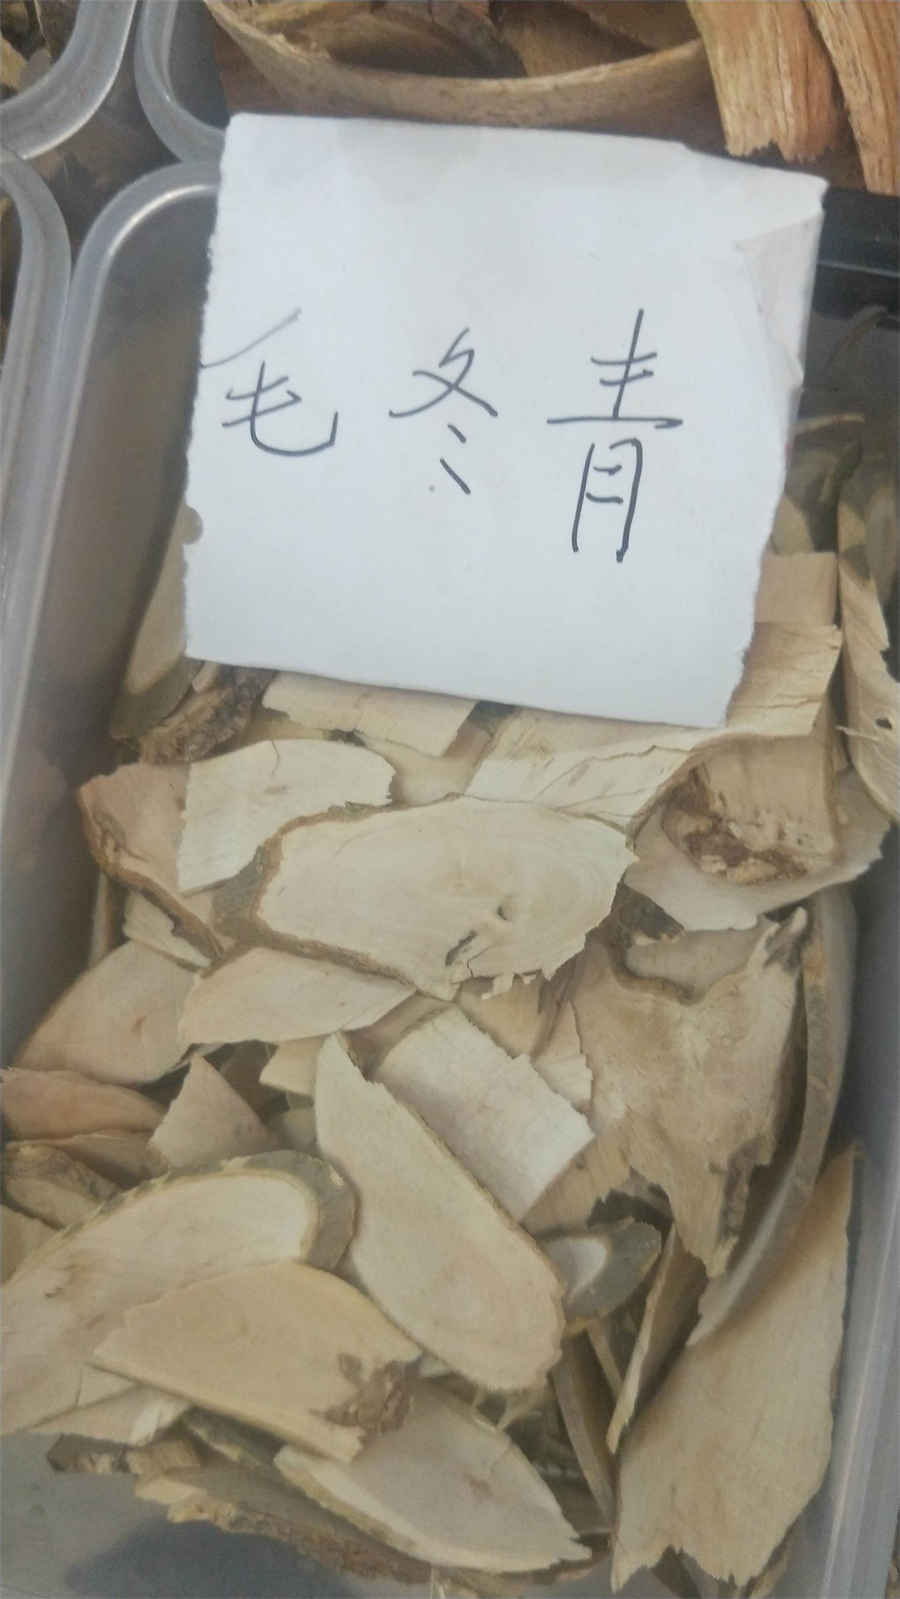 毛冬青